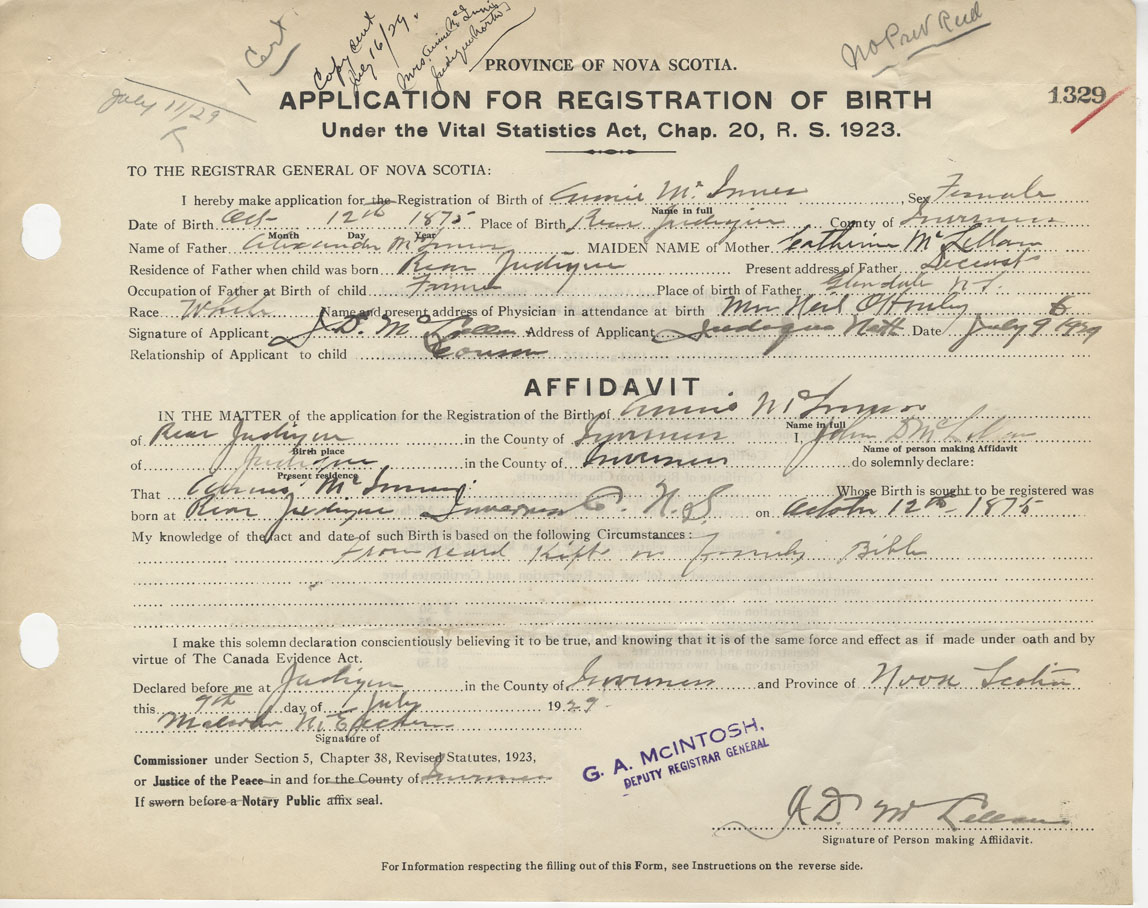 1 Cert
Copy sent
July 16/29.
Mrs. Annie Mc Innis
Judique North
No Prev Recd
July 11/29
PROVINCE OF NOVA SCOTIA.
APPLICATION FOR REGISTRATION OF BIRTH
1329
Under the Vital Statistics Act, Chap. 20, R. S. 1923.
TO THE REGISTRAR GENERAL OF NOVA SCOTIA:
I hereby make application for the Registration of Birth of Annie Mc Innes Sex Female
Name in full
Date of Birth Oct 12th 1875 Place of Birth Rear Judique County of Inverness
Month Day Year
Name of Father Alexander Mc Innis MAIDEN NAME of Mother Catherine Mc Lellan
Residence of Father when child was born Rear Judique Present address of Father Deceast
Occupation of Father at Birth of child Farmer Place of birth of Father Glendale N.S.
Race White Name and present address of Physician in attendance at birth Mrs Neil
Signature of Applicant J. D. Mc Lellan Address of Applicant Judique North Date July 9 1929
Relationship of Applicant to child Cousin
AFFIDAVIT
IN THE MATTER of the application for the Registration of the Birth of Annie Mc Innes
Name in full
of Rear Judique in the County of Inverness I, John D Mc Lellan
Birth place Name of person making Affidavit
of Judique in the County of Inverness do solemnly declare:
Present residence
That Annie Mc Innis Whose Birth is sought to be registered was
born at Rear Judique Inverness C. N.S. on October 12th 1875
My knowledge of the fact and date of such Birth is based on the following Circumstances:
From reard Kept on Family Bible
I make this solemn declaration conscientiously believing it to be true, and knowing that it is of the same force and effect as if made under oath and by
virtue of The Canada Evidence Act.
Declared before me at Judique in the County of Inverness and Province of Nova Scotia
this 9th day of July 1929.
Signature of
Commissioner under Section 5, Chapter 38, Revised Statutes, 1923,
or Justice of the Peace in and for the County of Inverness
If sworn before a Notary Public affix seal.
G. A. McINTOSH,
DEPUTY REGISTRAR GENERAL
J. D. Mc Lellan
Signature of Person making Affidavit.
For Information respecting the filling out of this Form, see Instructions on the reverse side.